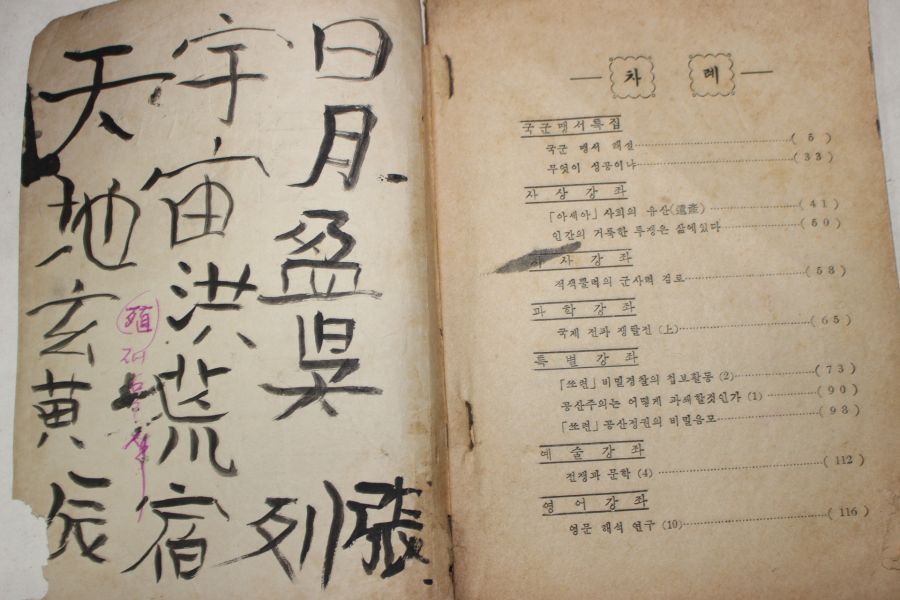 天地玄黄
宇宙洪荒
日月盈昃
辰宿列張
차 례
국군맹서특집
국군 맹서 해설 ( 5 )
무엇이 성공이냐 ( 33 )
사 상 강 좌
「아세아」 사회의 유산(遺產) ( 41 )
인간의 거룩한 투쟁은 삶에있다 ( 50 )
시 사 강 좌
적색쁠럭의 군사력 검토 ( 58 )
과 학 강 좌
국제 전파 쟁탈전 (上) ( 65 )
특 별 강 좌
「쏘련」 비밀경찰의 첩보활동 (2) ( 73 )
공산주의는 어떻게 파쇄할것인가 (1) ( 90 )
「쏘련」 공산정권의 비밀음모 ( 98 )
예 술 강 좌
전쟁과 문학 (4) ( 112 )
영 어 강 좌
영문 해석 연구 (10) ( 116 )